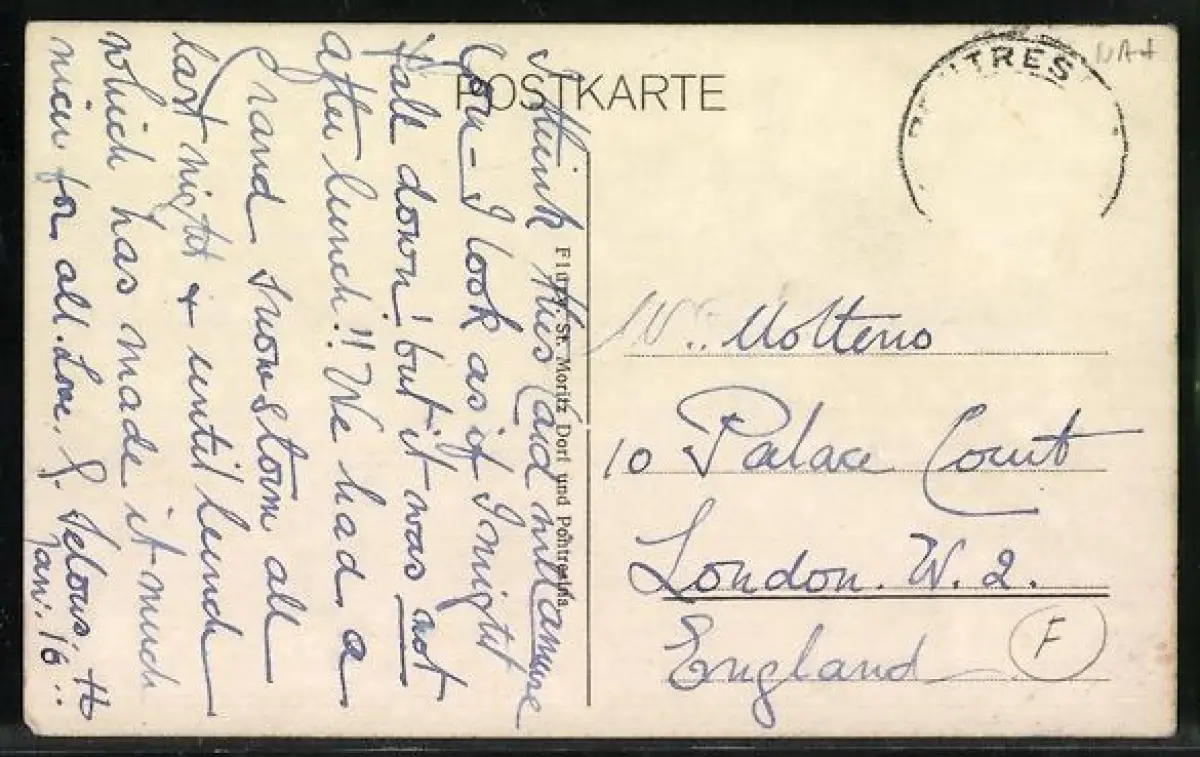 POSTKARTE
I think this Card will amuse
you - I look as if I might
fall down! but it was not
after lunch!! We had a
grand snowstorm all
last night & until lunch
which has made it much
nicer for all. Love, G. Selous.
Jan. 16
Flury, St. Moritz Dorf und Pontresina
NTRES
Molteno
10 Palace Court
London. W. 2.
England
F